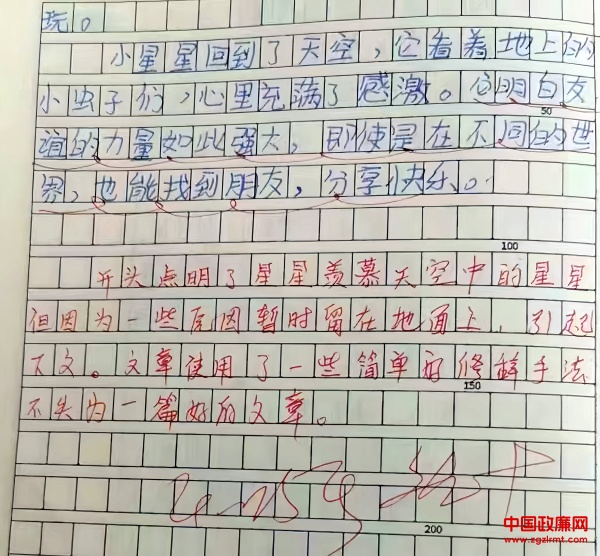 玩。
小星星回到了天空，它看着地上的
小虫子们，心里充满了感激。它明白友
50
谊的力量如此强大，即使是在不同的世
界，也能找到朋友，分享快乐。
100
开头点明了星星羡慕天空中的星星
但因为一些原因暂时留在地面上，引起
下文。文章使用了一些简单的修辞手法
150
不失为一篇好的文章。
200
中国政廉网
www.zgzlrmt.com